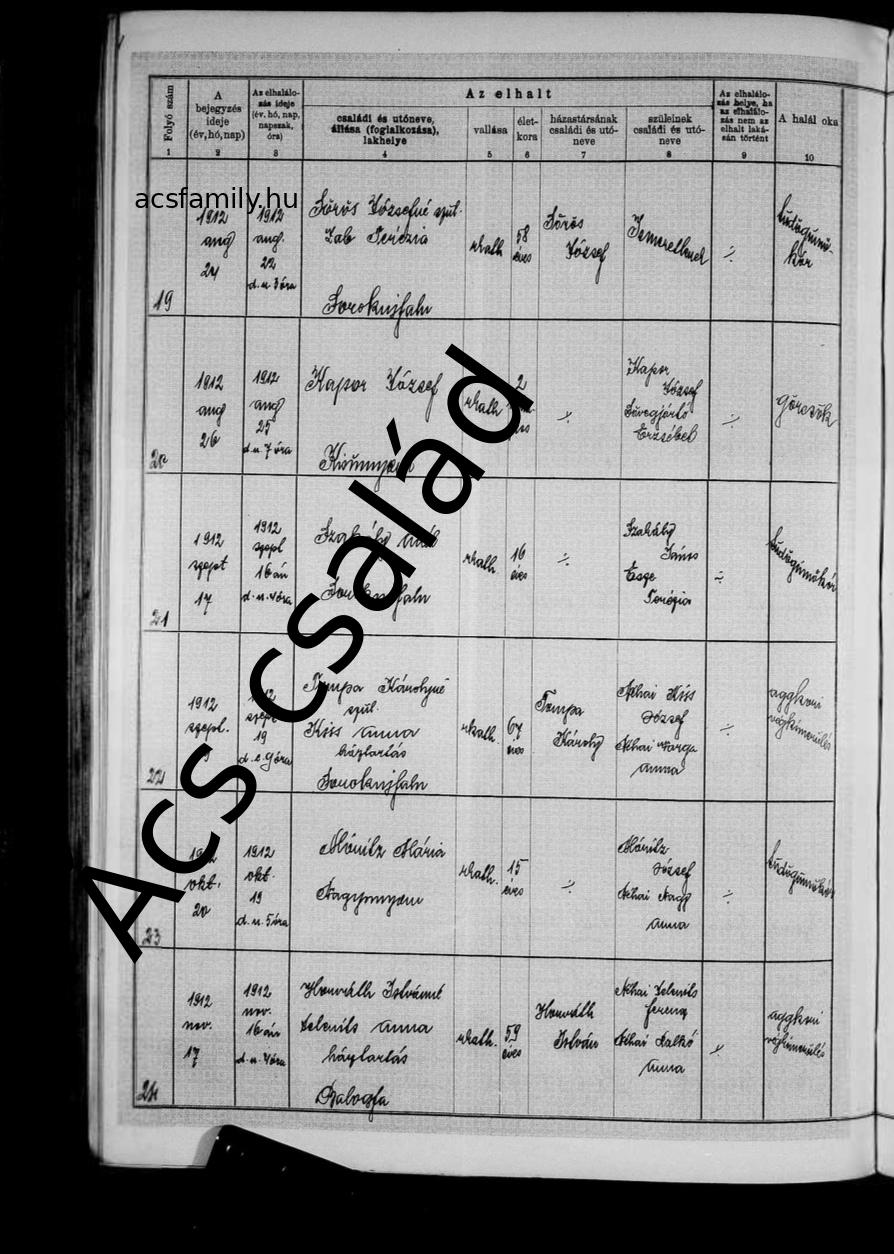 Az elhalt
Folyó szám
A bejegyzés ideje (év, hó, nap)
Az elhalálo-
zás ideje
(év, hó, nap,
napszak,
óra)
családi és utóneve,
állása (foglalkozása),
lakhelye
vallása
élet-
kora
házastársának
családi és utó-
neve
szüleinek
családi és utó-
neve
Az elhalálo-
zás helye, ha
az elhalálo-
zás nem az
elhalt laká-
sán történt
A halál oka
1 2 3 4 5 6 7 8 9 10
acsfamily.hu
Acs család
19
1912
aug
24
1912
aug.
22
d. u 3 óra
Sörös Józsefné szül.
Terézia
Soroknjfalu
rkath
58
éves
Sörös
József
Ismeretlenek
tüdőgümő-
kór
20
1912
aug
26
1912
aug
25
d. u. 7 óra
Kapor József
rkath
2
Kapor
József
Süvegjártó
Erzsébet
görcsök
21
1912
szept
17
1912
szept
16 án
d. u. 4 óra
rkath.
16
éves
Szakály
János
Esze
Terézia
tüdőgümőkór
22
1912
szept.
szept
19
d. e. 9 óra
Tompa Károlyné
szül.
Kiss Anna
háztartás
Soroknjfalu
rkath.
67
éves
Tompa
Károly
Néhai Kiss
József
Néhai Varga
Anna
aggkori
végkimerülés
23
okt.
20
1912
okt.
19
d. u. 5 óra
Mónitz Mária
Nagyunyom
rkath.
15
éves
Mónitz
József
Néhai Nagy
Anna
tüdőgümőkór
24
1912
nov.
17
1912
nov.
16 án
d. u. 4 óra
Horváth Istvánné
Anna
háztartás
Balogfa
rkath.
59
éves
Horváth
István
Néhai
Ferenc
Néhai
Anna
aggkori
végkimerülés